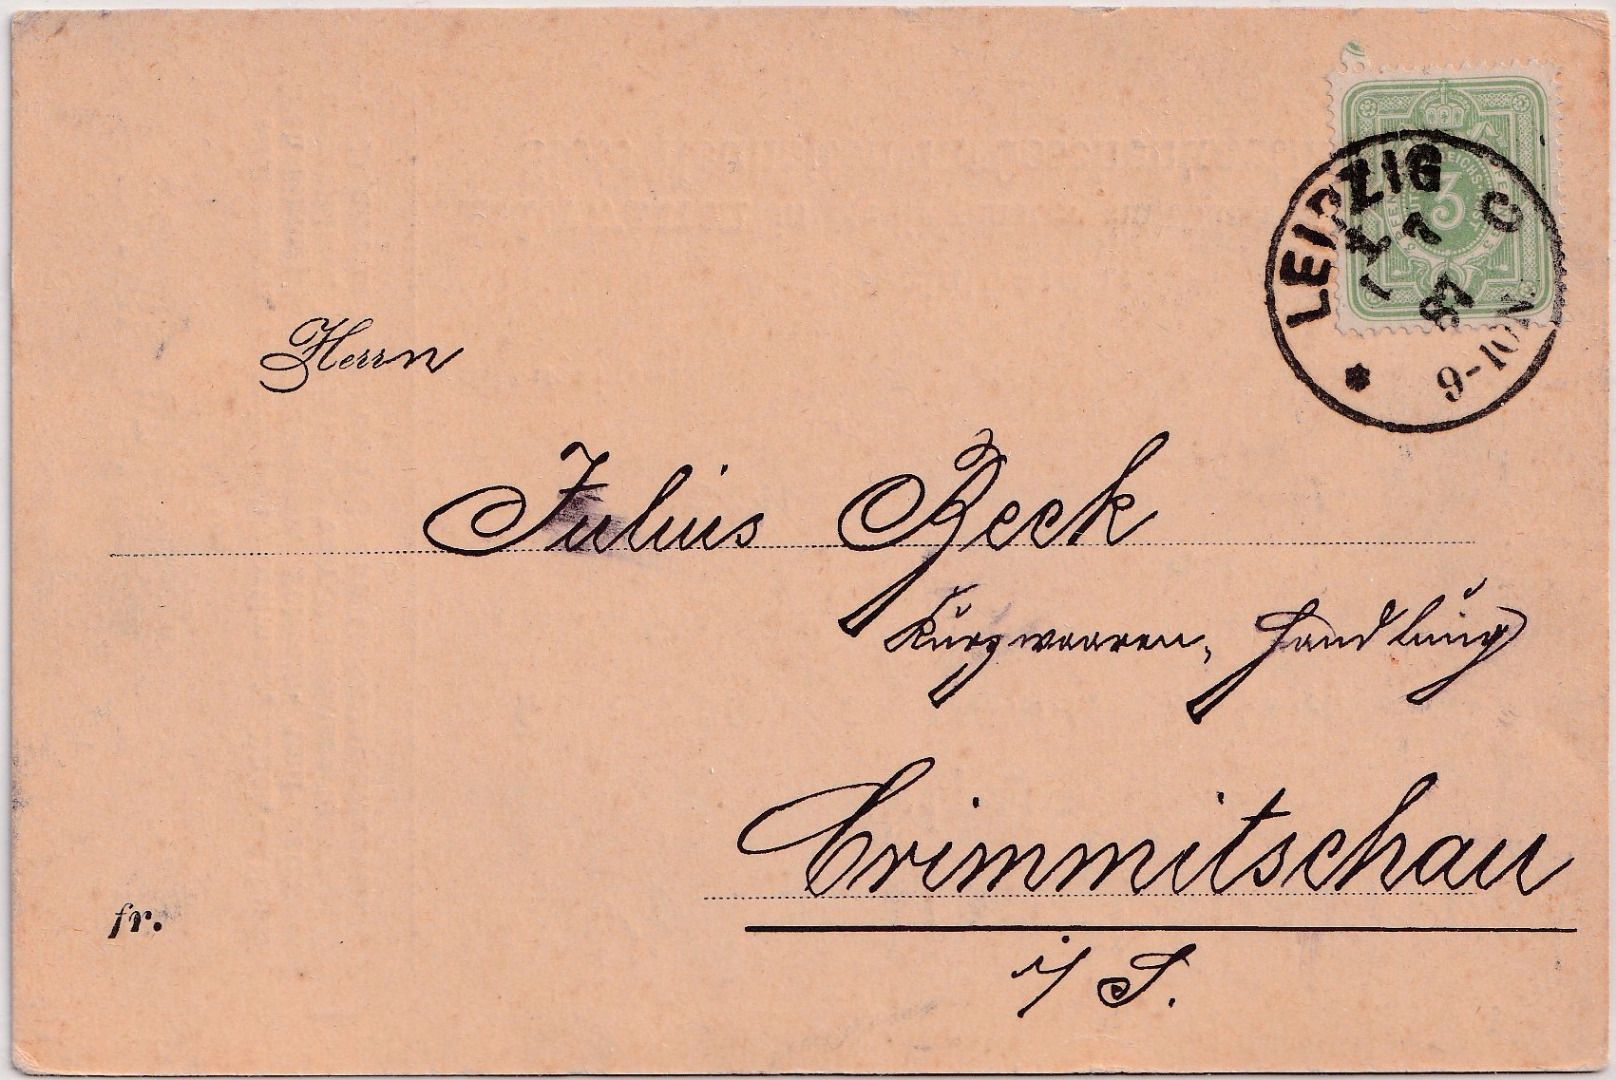 LEIPZIG
1
7
C
87
9-10N.
3
Herrn
Julius Beck
Kurzwaaren, Handlung
Crimmitschau
fr.
i/S.